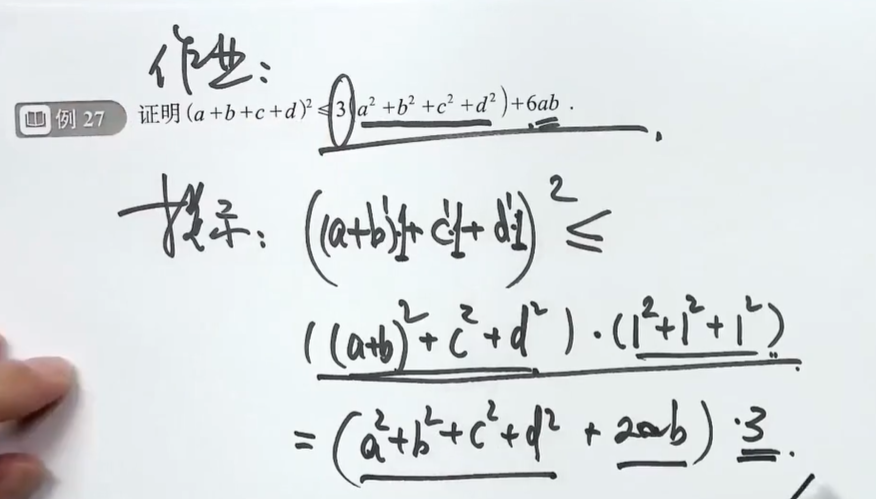 作业:
例 27 证明(a+b+c+d)² ≤ 3(a²+b²+c²+d²)+6ab.
提示: ((a+b)·1+c·1+d·1)² ≤
((a+b)²+c²+d²)·(1²+1²+1²)
=(a²+b²+c²+d²+2ab)·3.